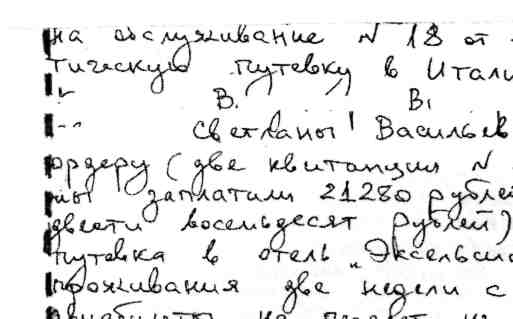 на обслуживание N 18 от
тическую путевку в Итали
В. В,
Светланы Васильев
ордеру (две квитанции N
мы заплатили 21280 рублей
двести восемьдесят рублей)
путевка в отель „Эксельсио
проживания две недели с